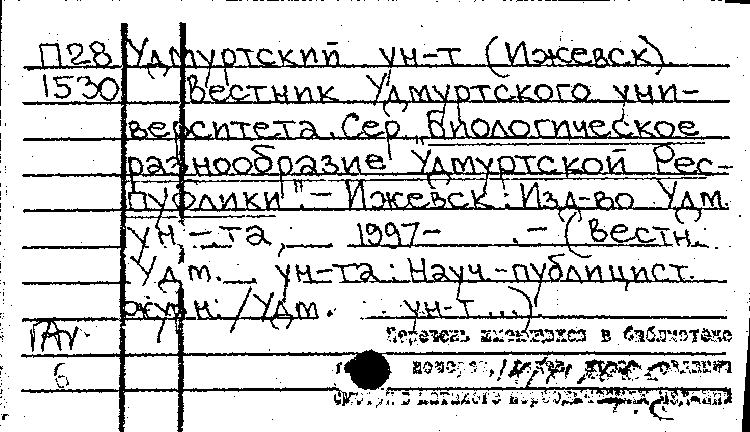 П28 Удмуртский ун-т (Ижевск).
1530 Вестник Удмуртского уни-
верситета. Сер. "Биологическое
разнообразие Удмуртской Рес-
публики". - Ижевск: Изд-во Удм.
ун-та, 1997- . - (Вестн.
Удм. ун-та: Науч.-публицист.
журн. / Удм. ун-т...).
Перечень имеющихся в библиотеке
6 номеров, издания
смотри в каталоге периодических изданий